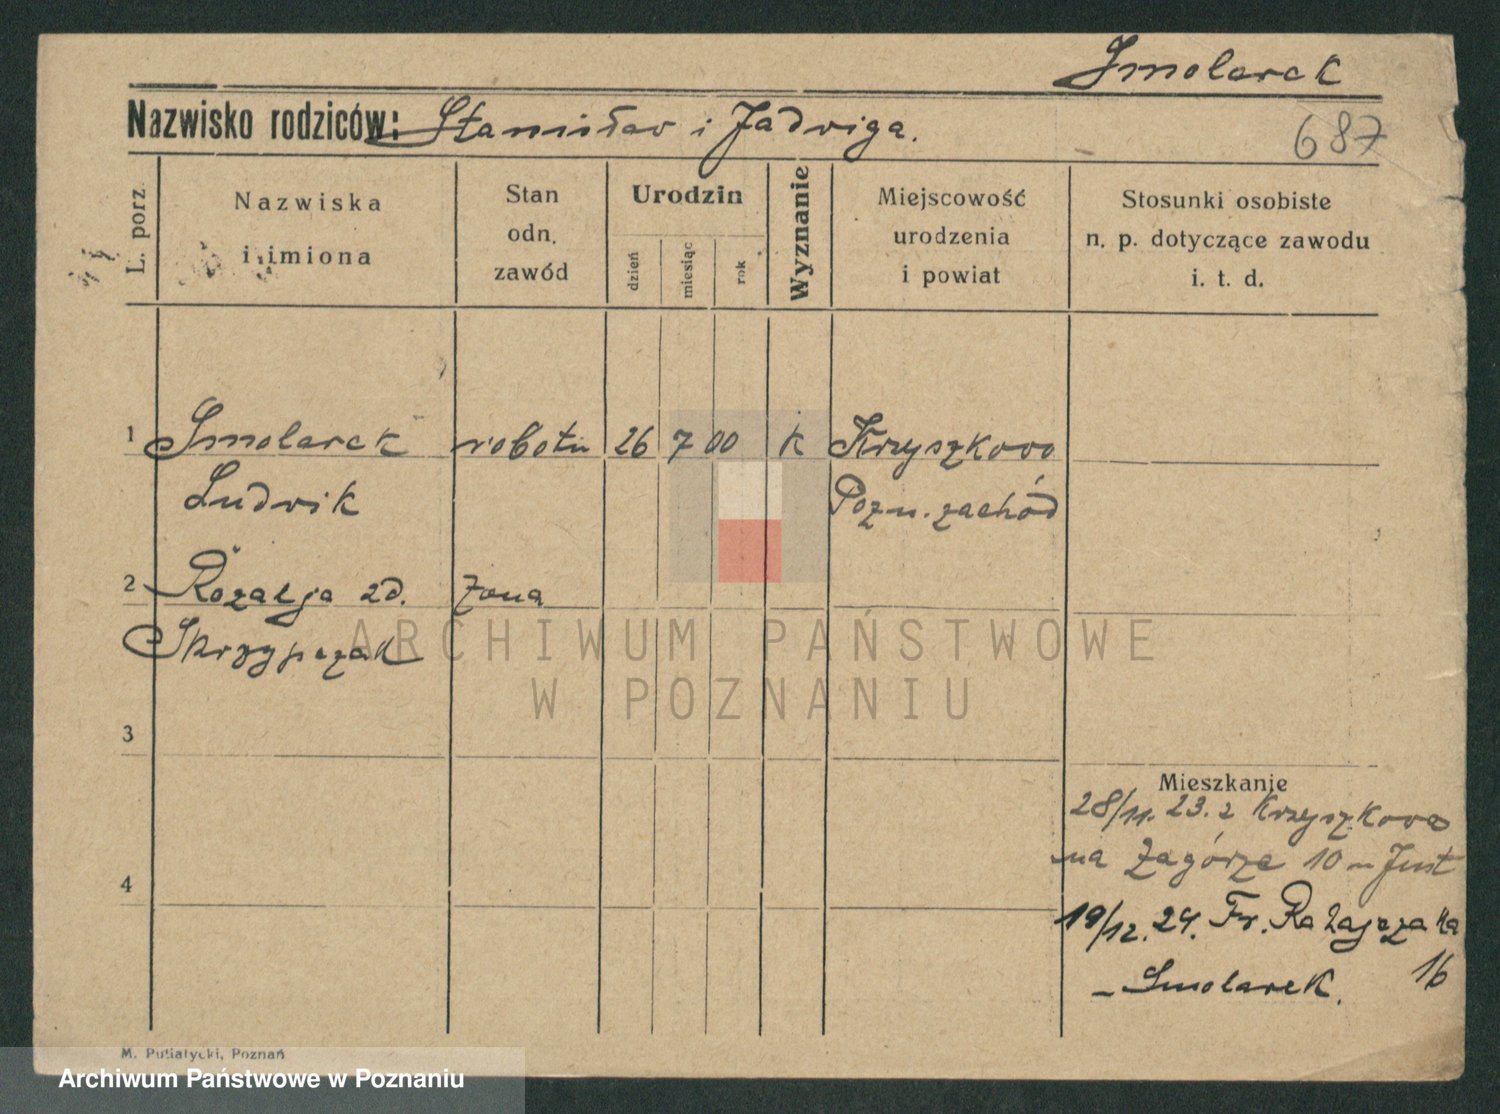 Smolarek
Nazwisko rodziców: Stanisław i Jadwiga.
687
L. porz.
Nazwiska
i imiona
Stan
odn.
zawód
Urodzin
dzień
miesiąc
rok
Wyznanie
Miejscowość
urodzenia
i powiat
Stosunki osobiste
n. p. dotyczące zawodu
i. t. d.
1 Smolarek robotn 26 7 00 k Krzyszkowo
Ludwik Pozn. zachód
2 Rozalja zd. żona
Skrzypczak
ARCHIWUM PAŃSTWOWE
W POZNANIU
3
Mieszkanie
28/11. 23. z Krzyszkowa
na Zagórze 10
4
19/12. 24. Fr. Ratajczaka
16
– Smolarek.
M. Putiatycki, Poznań
Archiwum Państwowe w Poznaniu